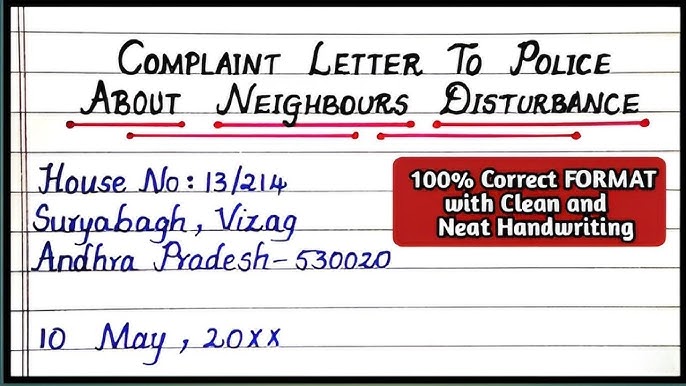 COMPLAINT LETTER TO POLICE
ABOUT NEIGHBOURS DISTURBANCE
House No: 13/214
Suryabagh, Vizag
Andhra Pradesh-530020
10 May, 20xx
100% Correct FORMAT
with Clean and
Neat Handwriting